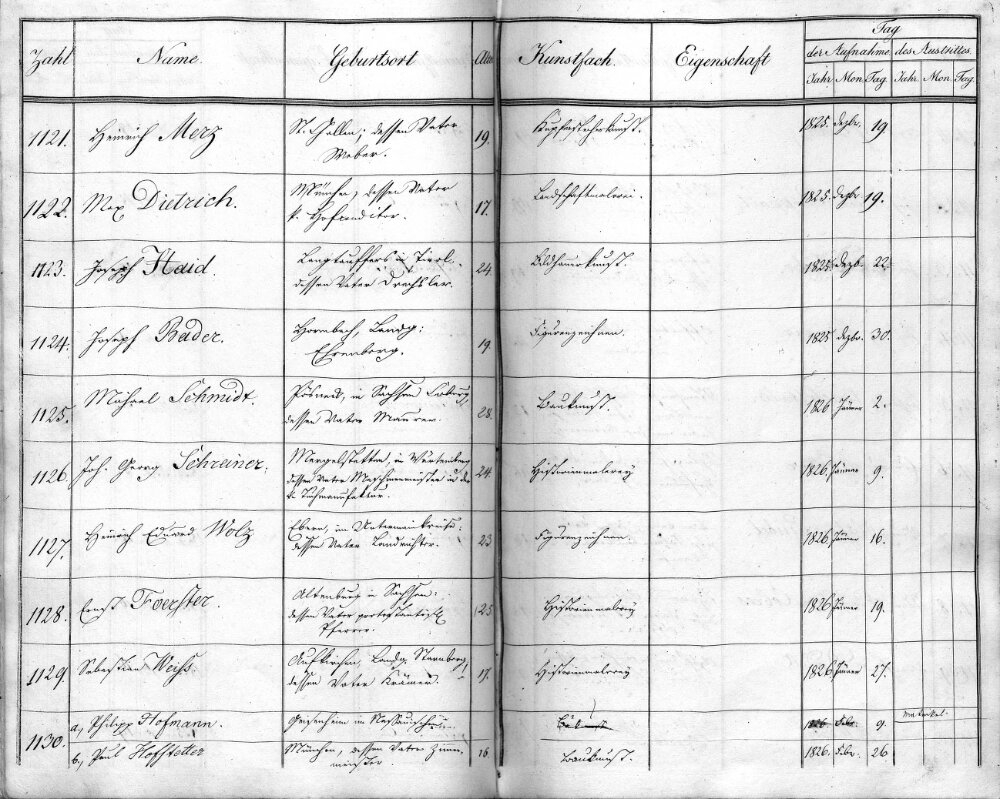 Zahl Name. Geburtsort Alter Kunstfach. Eigenschaft Tag
der Aufnahme des Austrittes.
Jahr Mon. Tag Jahr. Mon. Tag
1121. Heinrich Merz St. Gallen; dessen Vater 19. Kupferstecherkunst. 1825. Dezbr. 19
Weber.
1122. Max Dietrich. München, dessen Vater 17. Landschaftmalerei. 1825. Dezbr 19.
k. Hofauditor.
1123. Joseph Haid. Langtauffers in Tirol. 24 Bildhauerkunst. 1825. Dezb. 22.
dessen Vater Drechsler.
1124. Joseph Bader. Hornbech, Landg: 19 Figurenzeichnen. 1825 Dezbr. 30.
Ehrenberg.
1125. Michael Schmidt. Pösneck, in Sachsen Coburg, 28. Baukunst. 1826 Jänner 2.
dessen Vater Maurer.
1126. Joh. Georg Schreiner. Mergelstetten, in Würtemberg 24. Historienmalerey 1826. Jänner 9.
dessen Vater Maschinenmeister in der
k. Tuchmanufaktur.
1127. Heinrich Eduard Wolz Ebern, im Untermainkreise: 23 Figurenzeichnen. 1826. Jänner 16.
dessen Vater Landrichter.
1128. Ernst Foerster. Altenburg in Sachsen: 25. Historienmalerey 1826 Jänner 19.
dessen Vater protestantisch
Pfarrer.
1129. Sebastian Weiss. Aufkirchen, Landg. Starnberg, 17. Historienmalerey 1826 Jänner 27.
dessen Vater Krämer.
1130. a, Philipp Hofmann. Geisenheim im Nassauischen. 1826 Febr. 9.
b, Paul Hofstetter München, dessen Vater Zimmer- 16. Baukunst. 1826. Febr. 26
meister.